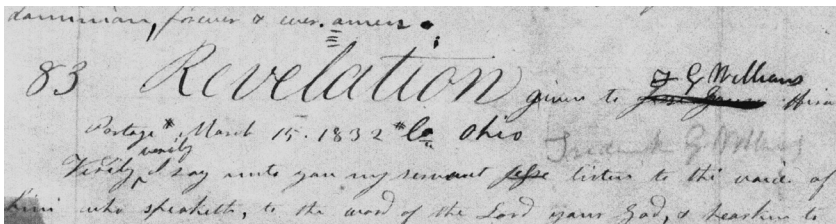 dominion, forever & ever. amen.
83 Revelation given to F G Williams Hiram
Portage * March 15. 1832 * Co Ohio Frederick G Williams
Verily verily I say unto you my servant Jesse listen to the voice of
him who speaketh, to the word of the Lord your God, & hearken to